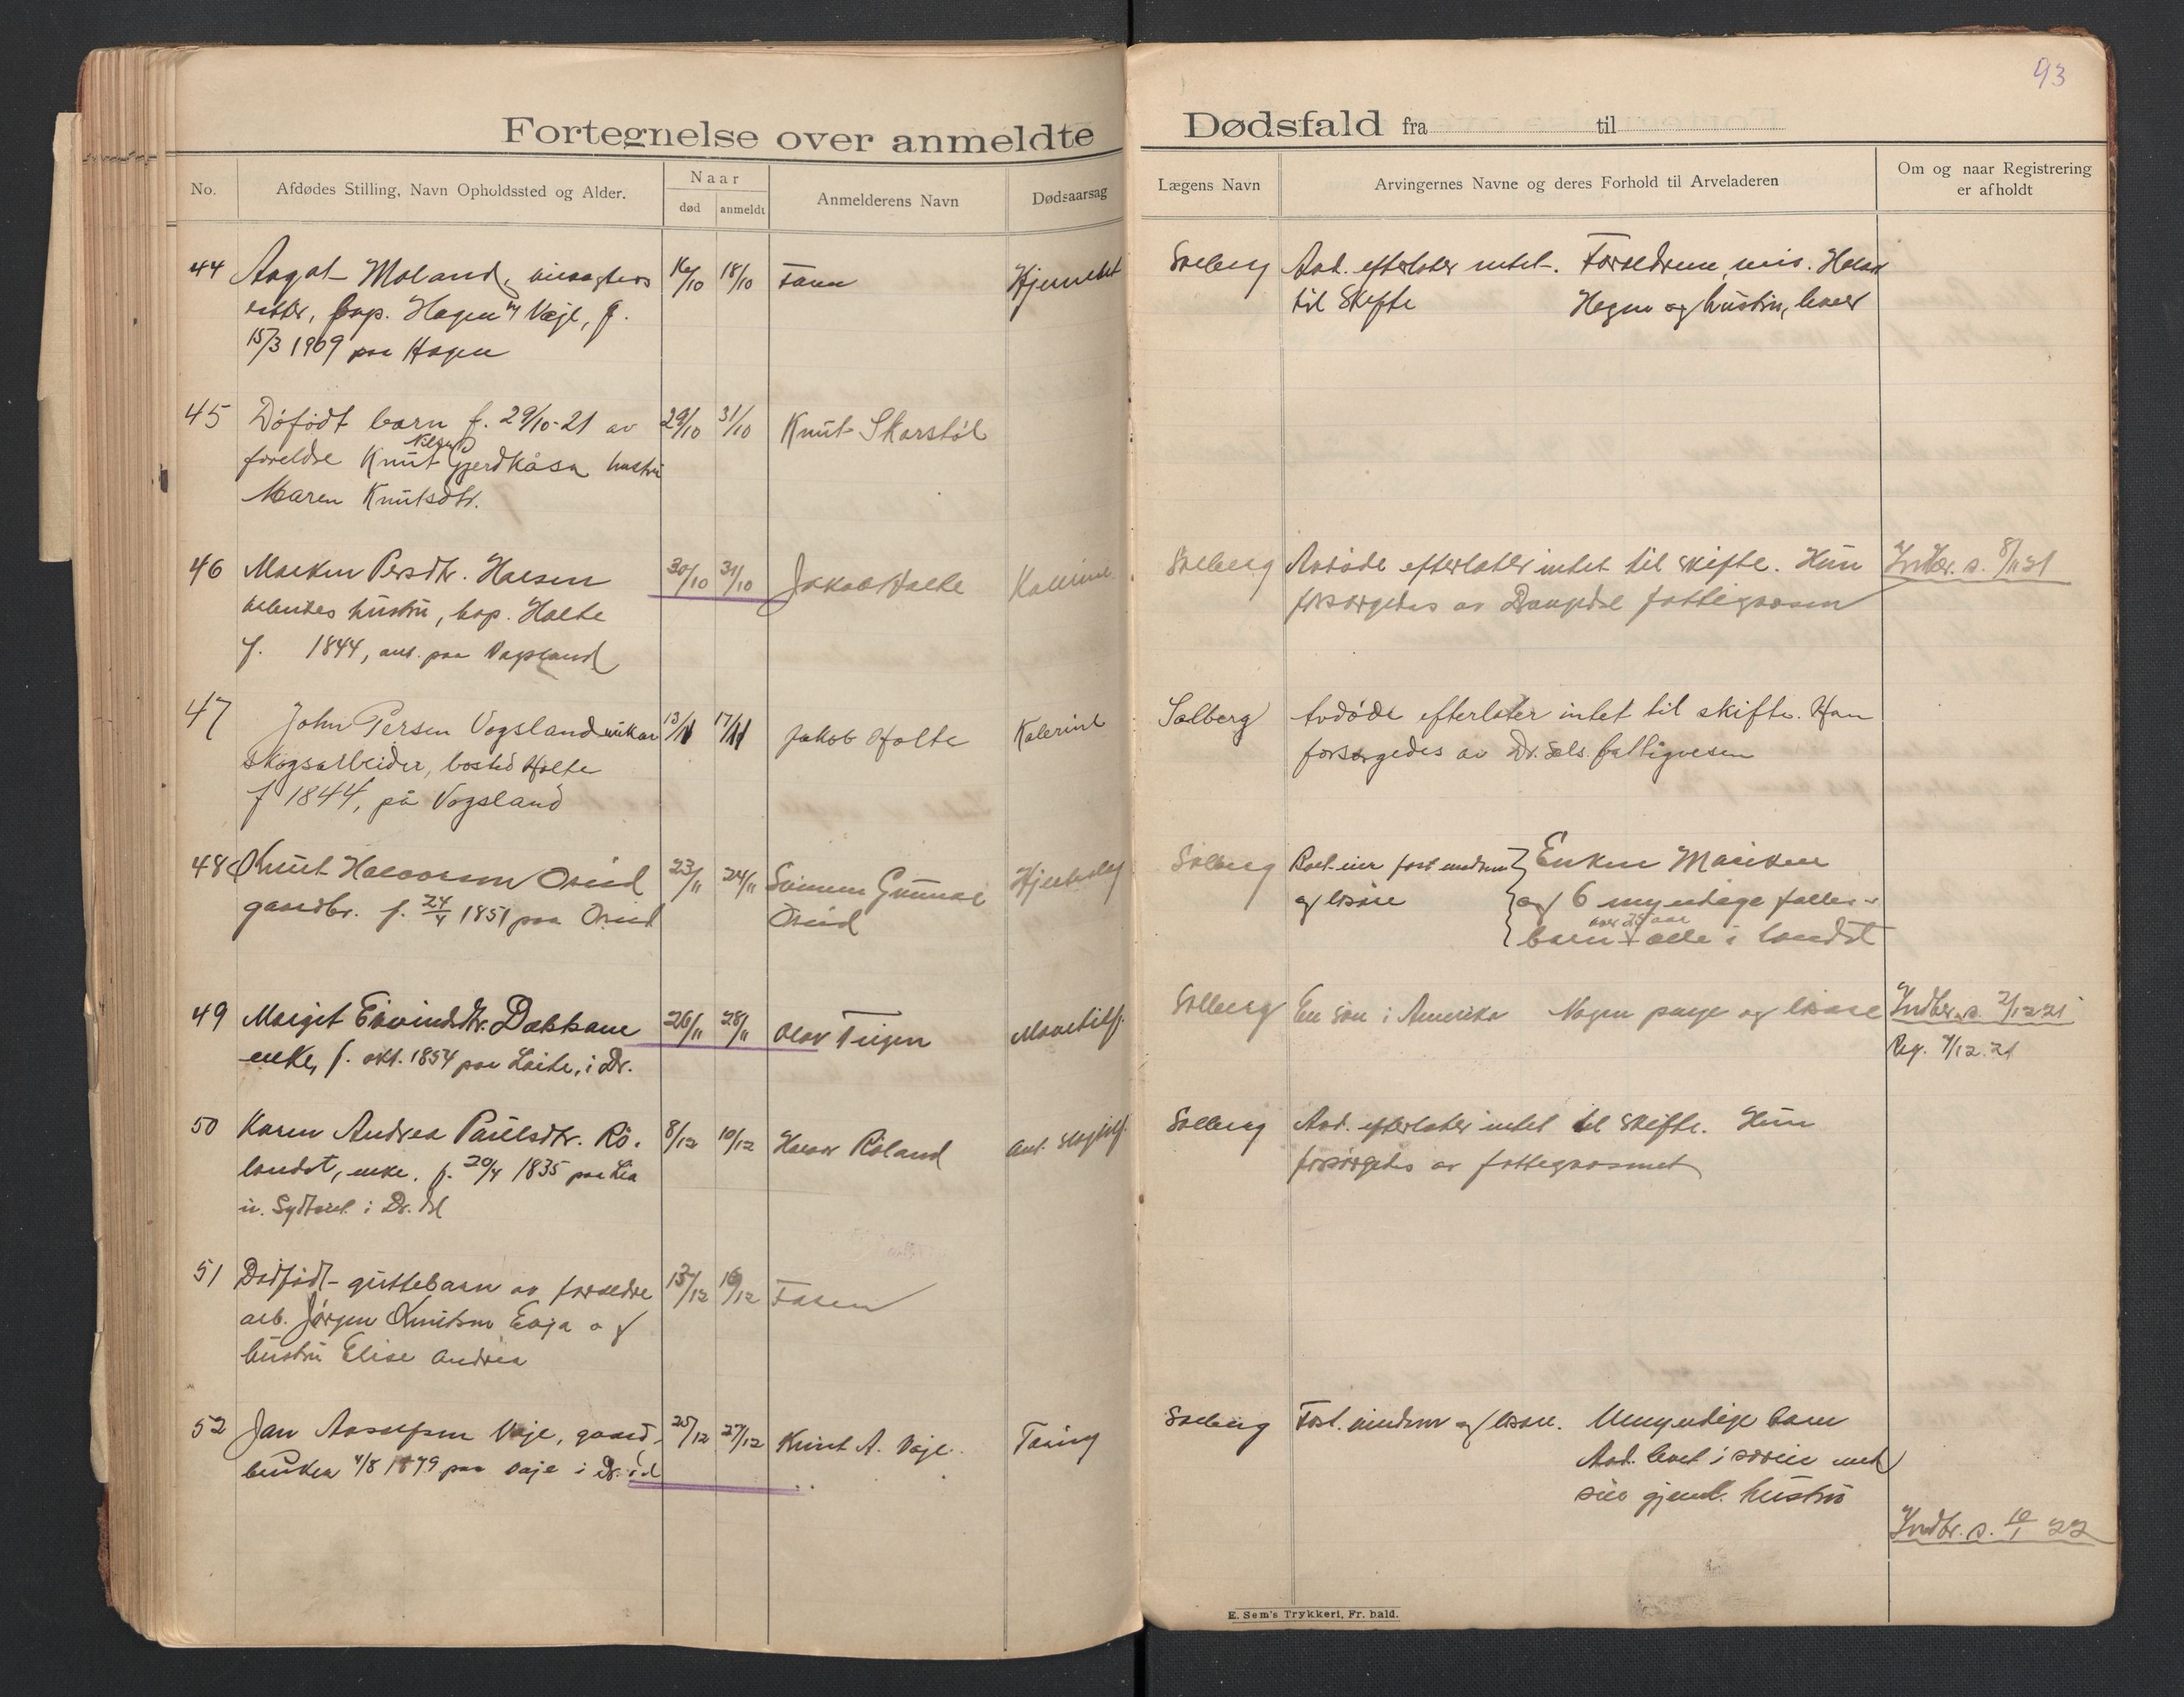 93
Fortegnelse over anmeldte Dødsfald fra til
No. Afdødes Stilling, Navn Opholdssted og Alder. Naar Anmelderens Navn Dødsaarsag Lægens Navn Arvingernes Navne og deres Forhold til Arveladeren Om og naar Registrering
død anmeldt er afholdt
44 Aagot Moland, 16/10 18/10 Solberg Avd. efterlater intet Forældrene,
datter, bop. Hagen Vaje, f. til Skifte Hagen og hustru, lever
15/3 1909 paa Hagen
45 Døfødt barn f. 29/10-21 av 29/10 31/10 Knut Skarstøl
foreldre Knut Nilsen Gjerdkåsa hustru
Maren Knutsdtr.
46 Marken Persdtr. 30/10 31/10 Jakob Holte Solberg Avdøde efterlater intet til skifte. Hun Indber. s. 8/11 21
hustru, bop. Holte forsørgedes av Drangedal fattigvæsen
f. 1844, paa Vogsland
47 John Persen Vogsland 13/11 17/11 Jakob Holte Solberg Avdøde efterlater intet til skifte. Han
skogsarbeider, bosted Holte forsørgedes av Dr.dals fattigvesen
f 1844, på Vogsland
48 Knut Halvorsen 23/11 24/11 Sønnen Gunnar Solberg fast eiendom Enken Mariken
gaardbr. f. 24/4 1851 paa og løsøre og 6 myndige fælles
barn over 25 aar alle i landet
49 Margit Eivindsdtr. Dakkane 26/11 28/11 Olav Teigen Solberg En søn i Amerika Nogen penge og løsøre Indber. s. 2/12 21
enke, f. okt. 1854 paa i Dr. Reg. 7/12.21
50 Karen Andrea Paulsdtr. Rø- 8/12 10/12 Halvor Røland Solberg Avd. efterlater intet til skifte. Hun
landst, enke. f. 20/4 1835 paa Lia forsørgedes av fattigvæsenet
i Dr.dal
51 Dødfødt guttebarn av forældre 13/12 16/12 Faren
arb. Jørgen Knutsen Eója og
hustru Elise Andrea
52 Jan Aasulfsen Vaje, gaard- 25/12 27/12 Knut A. Vaje. Tæring Solberg Fast. eiendom og løsøre. Umyndige barn
bruker 4/8 1879 paa Vaje i Dr.dal Avd. levet i særeie med
sin gjenl. hustru
Indbr. s. 10/1 22
E. Sem's Trykkeri, Fr.hald.